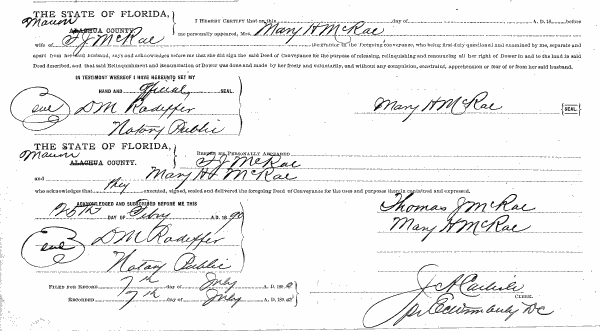 THE STATE OF FLORIDA,
Marion
ALACHUA COUNTY.
I HEREBY CERTIFY that on this day of A. D. 18 before
me personally appeared, Mrs. Mary H McRae
wife of T J McRae Declaration in the foregoing conveyance, who being first duly questioned and examined by me, separate and
apart from her said husband, says and acknowledges before me that she did sign the said Deed of Conveyance for the purpose of releasing, relinquishing and renouncing all her right of Dower in and to the land in said
Deed described, and that said Relinquishment and Renunciation of Dower was done and made by her freely and voluntarily, and without any compulsion, constraint, apprehension or fear of or from her said husband.
IN TESTIMONY WHEREOF I HAVE HEREUNTO SET MY
HAND AND official SEAL.
D M Radeffer
Notary Public
Mary H McRae SEAL.
THE STATE OF FLORIDA,
Marion
ALACHUA COUNTY.
BEFORE ME PERSONALLY APPEARED T J McRae
and Mary H McRae
who acknowledges that they executed, signed, sealed and delivered the foregoing Deed of Conveyance for the uses and purposes therein contained and expressed.
ACKNOWLEDGED AND SUBSCRIBED BEFORE ME THIS
25th DAY OF Feby A. D. 18 90
D M Radeffer
Notary Public
Thomas J McRae
Mary H McRae
FILED FOR RECORD 7th day of July A. D. 189
RECORDED 7th day of July A. D. 189
J A Carlisle
CLERK.
DC